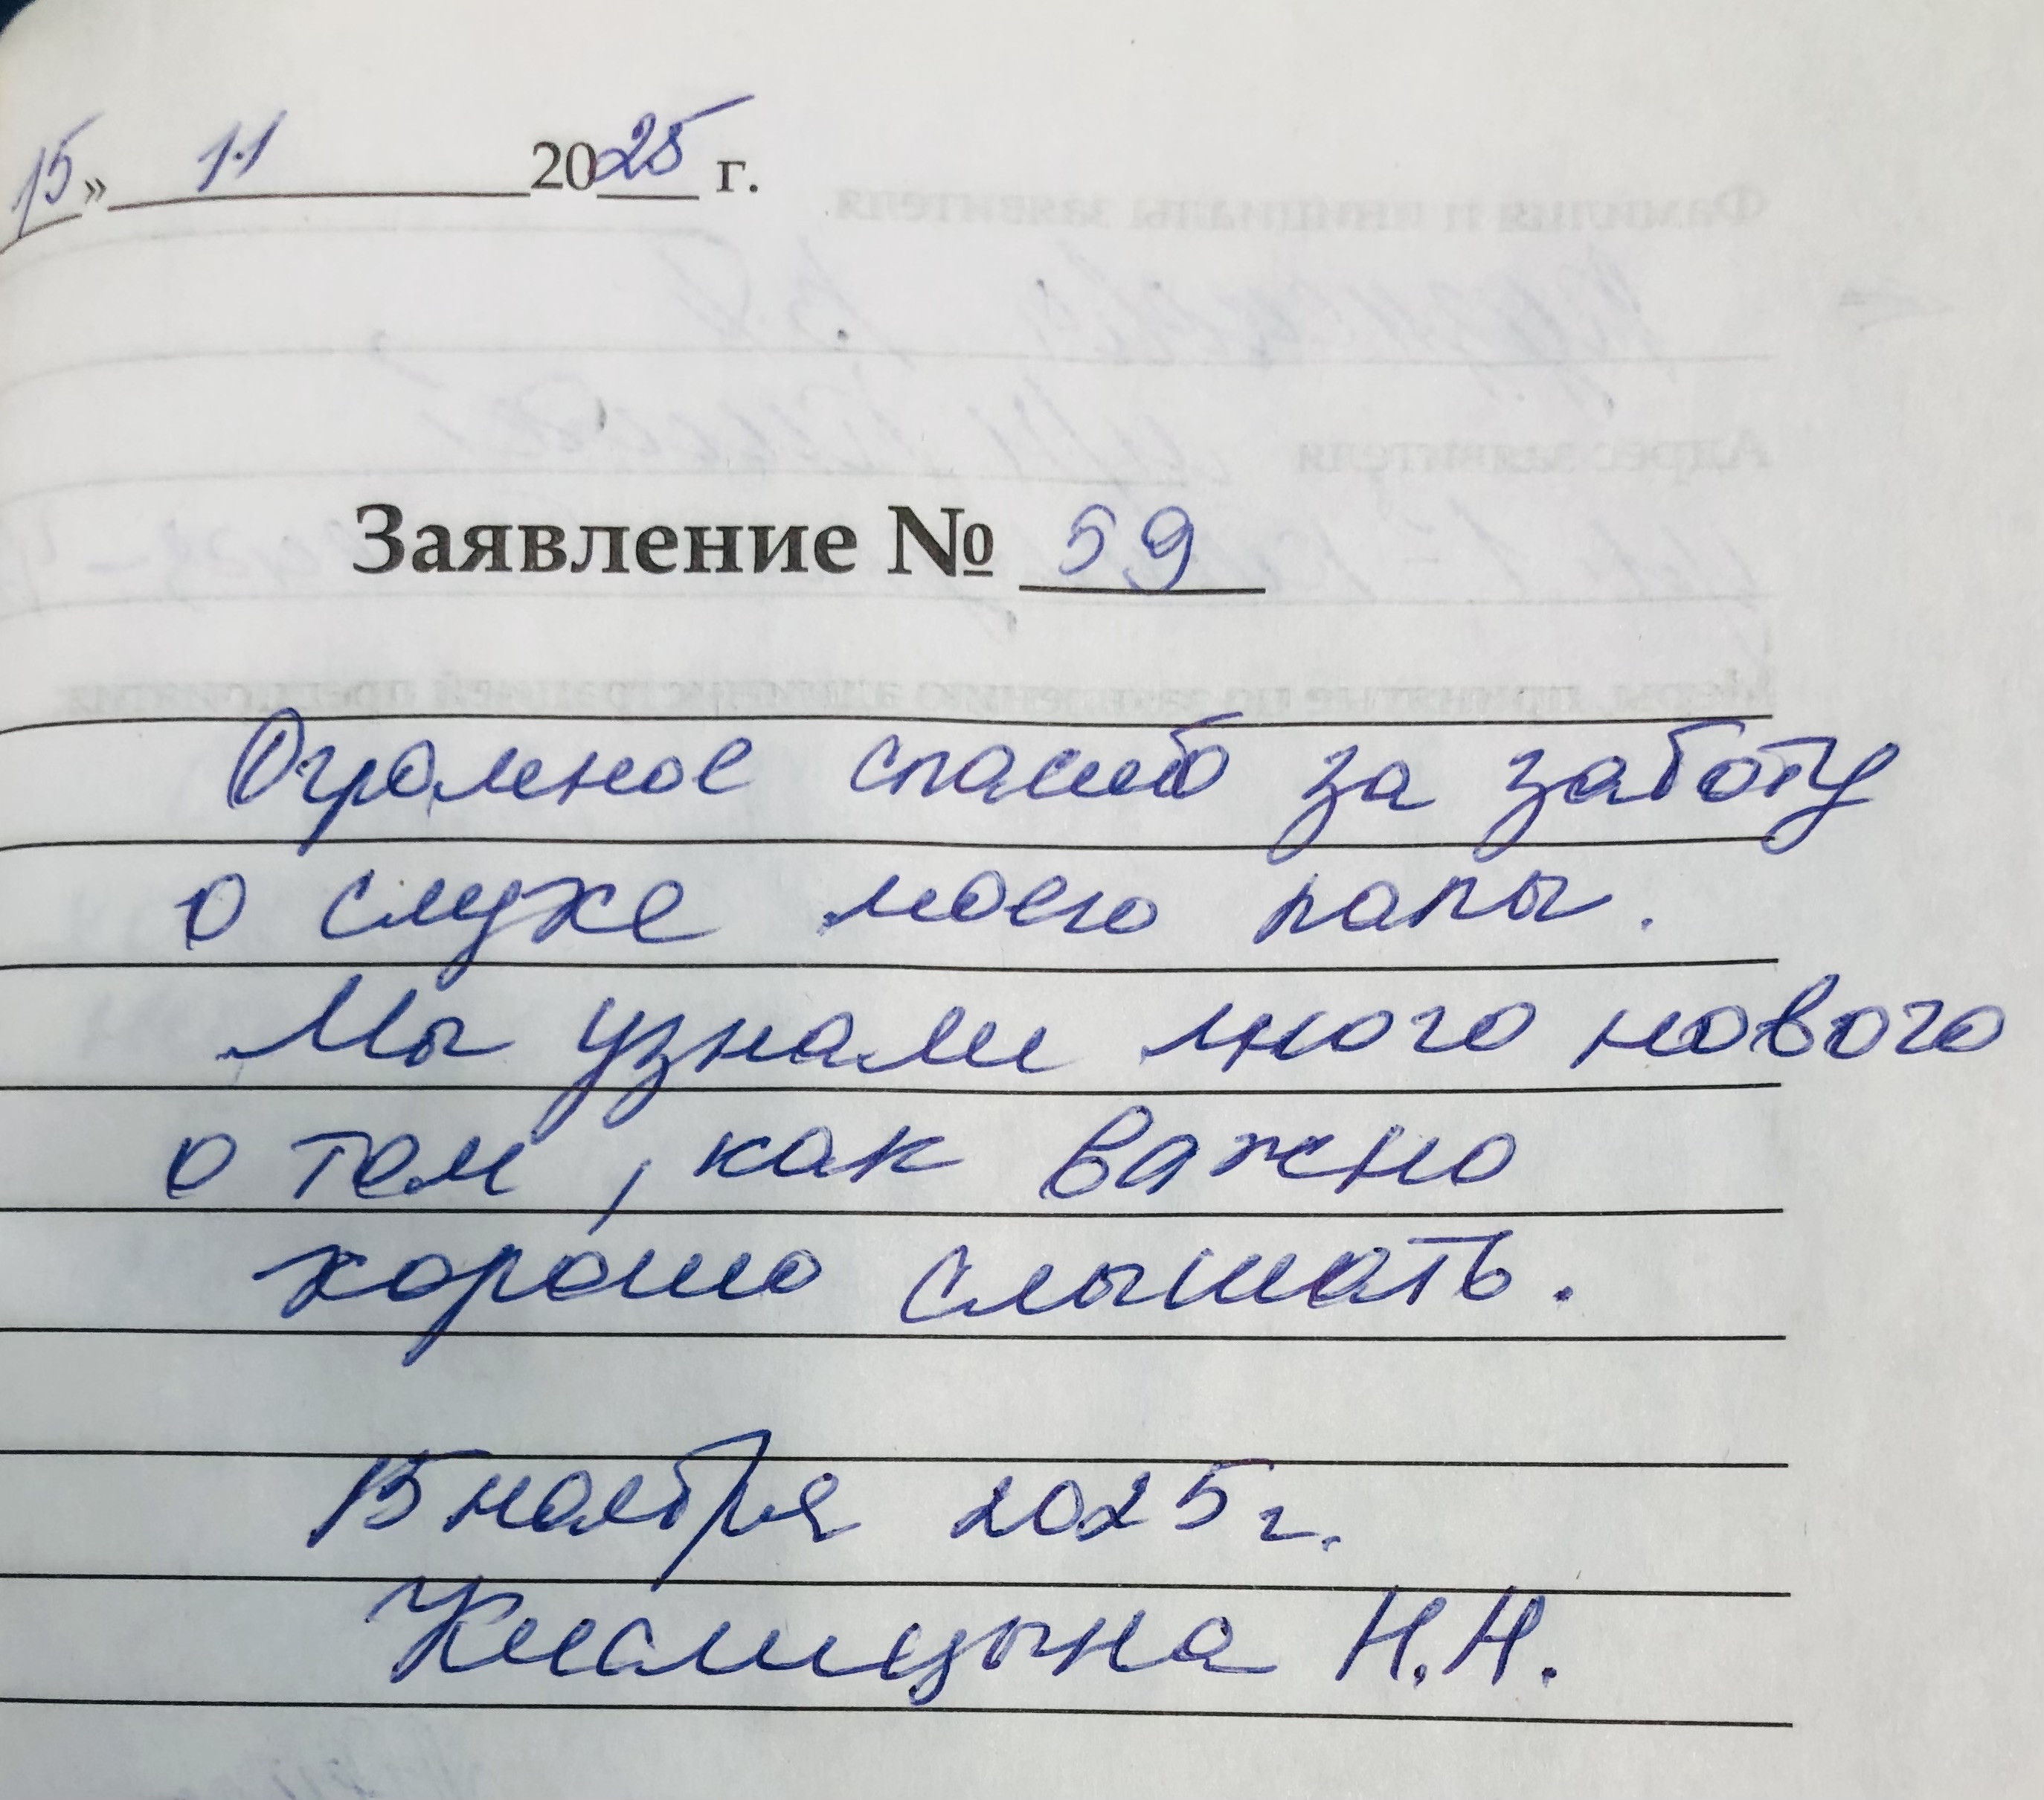 15» 11 2025 г.
Заявление № 59
Огромное спасибо за заботу
о слухе моего папы.
Мы узнали много нового
о том, как важно
хорошо слышать.
15 ноября 2025 г.
Н.Н.